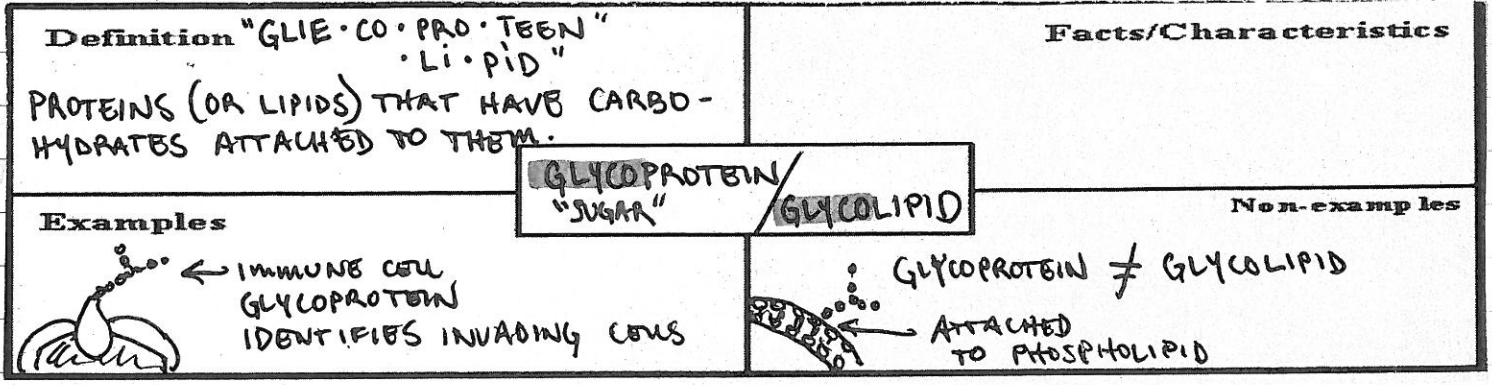 Definition "GLIE·CO·PRO·TEEN"
·Li·PiD"
PROTEINS (OR LIPIDS) THAT HAVE CARBO-
HYDRATES ATTACHED TO THEM.
Facts/Characteristics
GLYCOPROTEIN/
"SUGAR"
GLYCOLIPID
Examples
← IMMUNE CELL
GLYCOPROTEIN
IDENTIFIES INVADING CELLS
Non-examples
GLYCOPROTEIN ≠ GLYCOLIPID
← ATTACHED
TO PHOSPHOLIPID